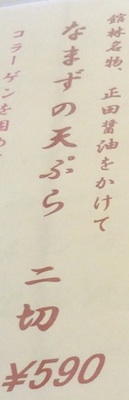 館林名物、正田醤油をかけて
なまずの天ぷら 二切
¥590
コラーゲンを